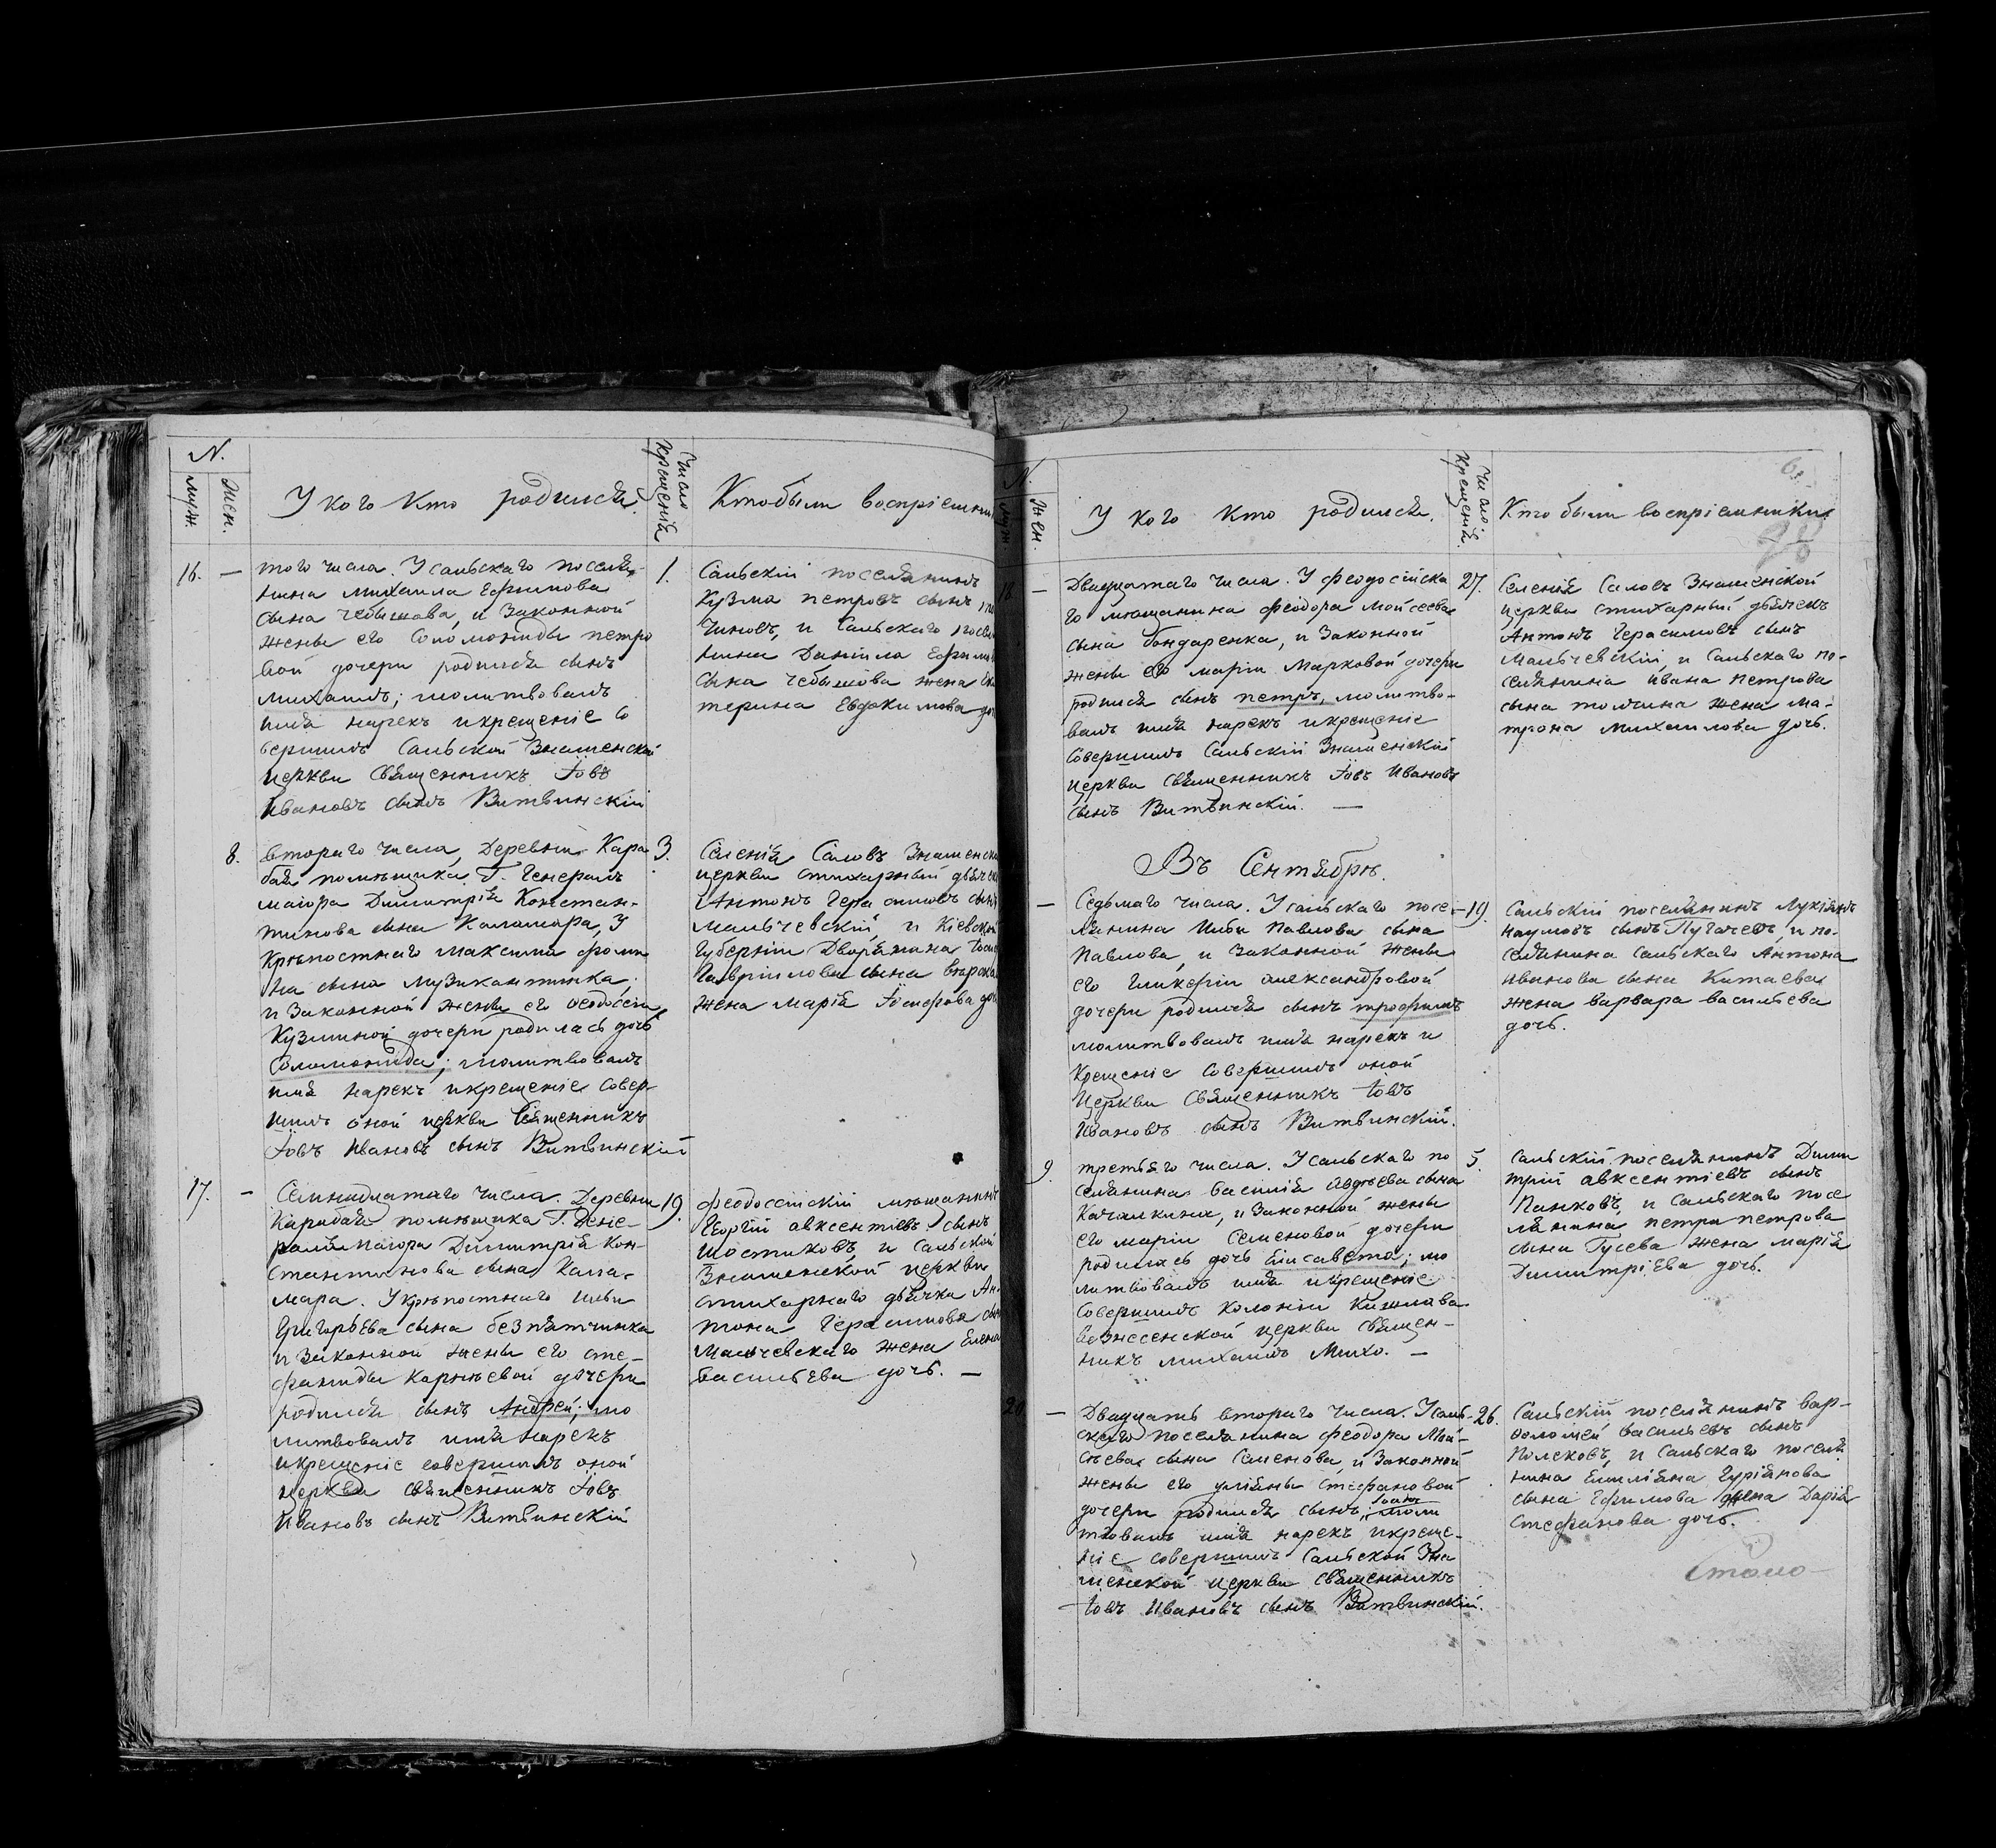 N.
муж.
жен.
У кого кто родился.
Число крещенія
Кто были воспріемни
16. —
того числа. У сальскаго поселя-
нина михаила Ефимова
сына чебышова, и законной
жены его Соломониды петро
вой дочери родился сынъ
михаилъ; молитвовалъ
имя нарекъ и крещеніе со
вершилъ Сальской Знаменской
церкви Священникъ Іовъ
Ивановъ сынъ Витвинскій
1.
Сальскій поселянинъ
Кузма петровъ сынъ
чиновъ, и Сальскаго посел
нина Даніила Ефими
сына чебышова жена Ека
терина Евдокимова до
8.
втораго числа, Деревни Кара
бая помѣщика Г. Генералъ
маіора Димитрія Констан-
тинова сына Каламара, у
Крѣпостнаго максима фоми
на сына музикантика,
и законной жены его Ѳеодосіи
Кузминой дочери родилась дочь
Соломонида; молитвовалъ
имя нарекъ и крещеніе совер-
шилъ оной церкви Священникъ
Іовъ Ивановъ сынъ Витвинскій
3.
Селенія Саловъ Знаменско
церкви стихарный дьячек
Антонъ Герасимовъ сынъ
мальчевскій, и Кіевской
Губерніи Дворянина
Гавріилова сына
жена марія Іосифова до
17. —
Семнадцатаго числа. Деревни
Карабая помѣщика Г. Гене-
ралъ маіора Димитрія Кон-
стантинова сына Кала-
мара. У крѣпостнаго Ильи
Григорьева сына безпятчинка
и законной жены его сте-
фаниды Карнѣевой дочери
родился сынъ Андрей; мо
литвовалъ имя нарекъ
и крещеніе совершилъ оной
церкви священникъ Іовъ
Ивановъ сынъ Витвинскій
19.
феодосійскій мѣщанинъ
Георгій авксентіевъ сынъ
шостиковъ, и Сальской
Знаменской церкви
стихарнаго дьячка Ан-
тона Герасимова сын
Мальчевскаго жена Елена
васильева дочь. —
N.
муж.
жен.
У кого кто родился.
Число крещенія.
Кто были воспріемники
18 —
Двадцатаго числа. У феодосійска
го мѣщанина феодора мойсеева
сына бондаренка, и законной
жены его маріи Марковой дочери
родился сынъ петръ, молитво-
валъ имя нарекъ и крещеніе
совершилъ Сальскій Знаменской
церкви священникъ Іовъ Ивановъ
сынъ Витвинскій. —
27.
Селенія Саловъ Знаменской
церкви стихарный дьячекъ
Антонъ Герасимовъ сынъ
мальчевскій, и Сальскаго по-
селянина ивана петрова
сына толчина жена ма-
трона михаилова дочь.
Въ Сентябрѣ.
—
Седьмаго числа. У сальскаго посе-
лянина Ильи Павлова сына
Павлова, и законной жены
его Гликеріи александровой
дочери родился сынъ трофимъ
молитвовалъ имя нарекъ и
крещеніе совершилъ оной
церкви священникъ Іовъ
Ивановъ сынъ Витвинскій.
19.
Сальскій поселянинъ Лукіянъ
наумовъ сынъ Пугачевъ, и по-
селянина сальскаго Антона
иванова сына Китаева
жена варвара васильева
дочь.
9.
третьяго числа. У сальскаго по
селянина василія Авдѣева сына
Качалкина, и законной жены
его маріи Семеновой дочери
родилась дочь Елисавета; мо
литвовалъ имя и крещеніе
совершилъ колоніи Кишлава
вознесенской церкви священ-
никъ михаилъ Михо. —
5.
Сальскій поселянинъ Дими
трій авксентіевъ сынъ
Панковъ, и Сальскаго посе
лянина петра петрова
сына Гусева жена марія
Димитріева дочь.
20 —
Двадцать втораго числа. У саль-
скаго поселянина феодора Мои-
сѣева сына Семенова, и законной
жены его уліяны Стефановой
дочери родился сынъ, моли
твовалъ имя нарекъ и креще-
ніе совершилъ Сальской Зна
менской церкви священникъ
Іовъ Ивановъ сынъ Витвинскій.
26.
Сальскій поселянинъ вар-
ѳоломей васильевъ сынъ
Полековъ, и Сальскаго поселя
нина Емиліяна Гуріянова
сына Ефимова жена Дарія
Стефанова дочь.